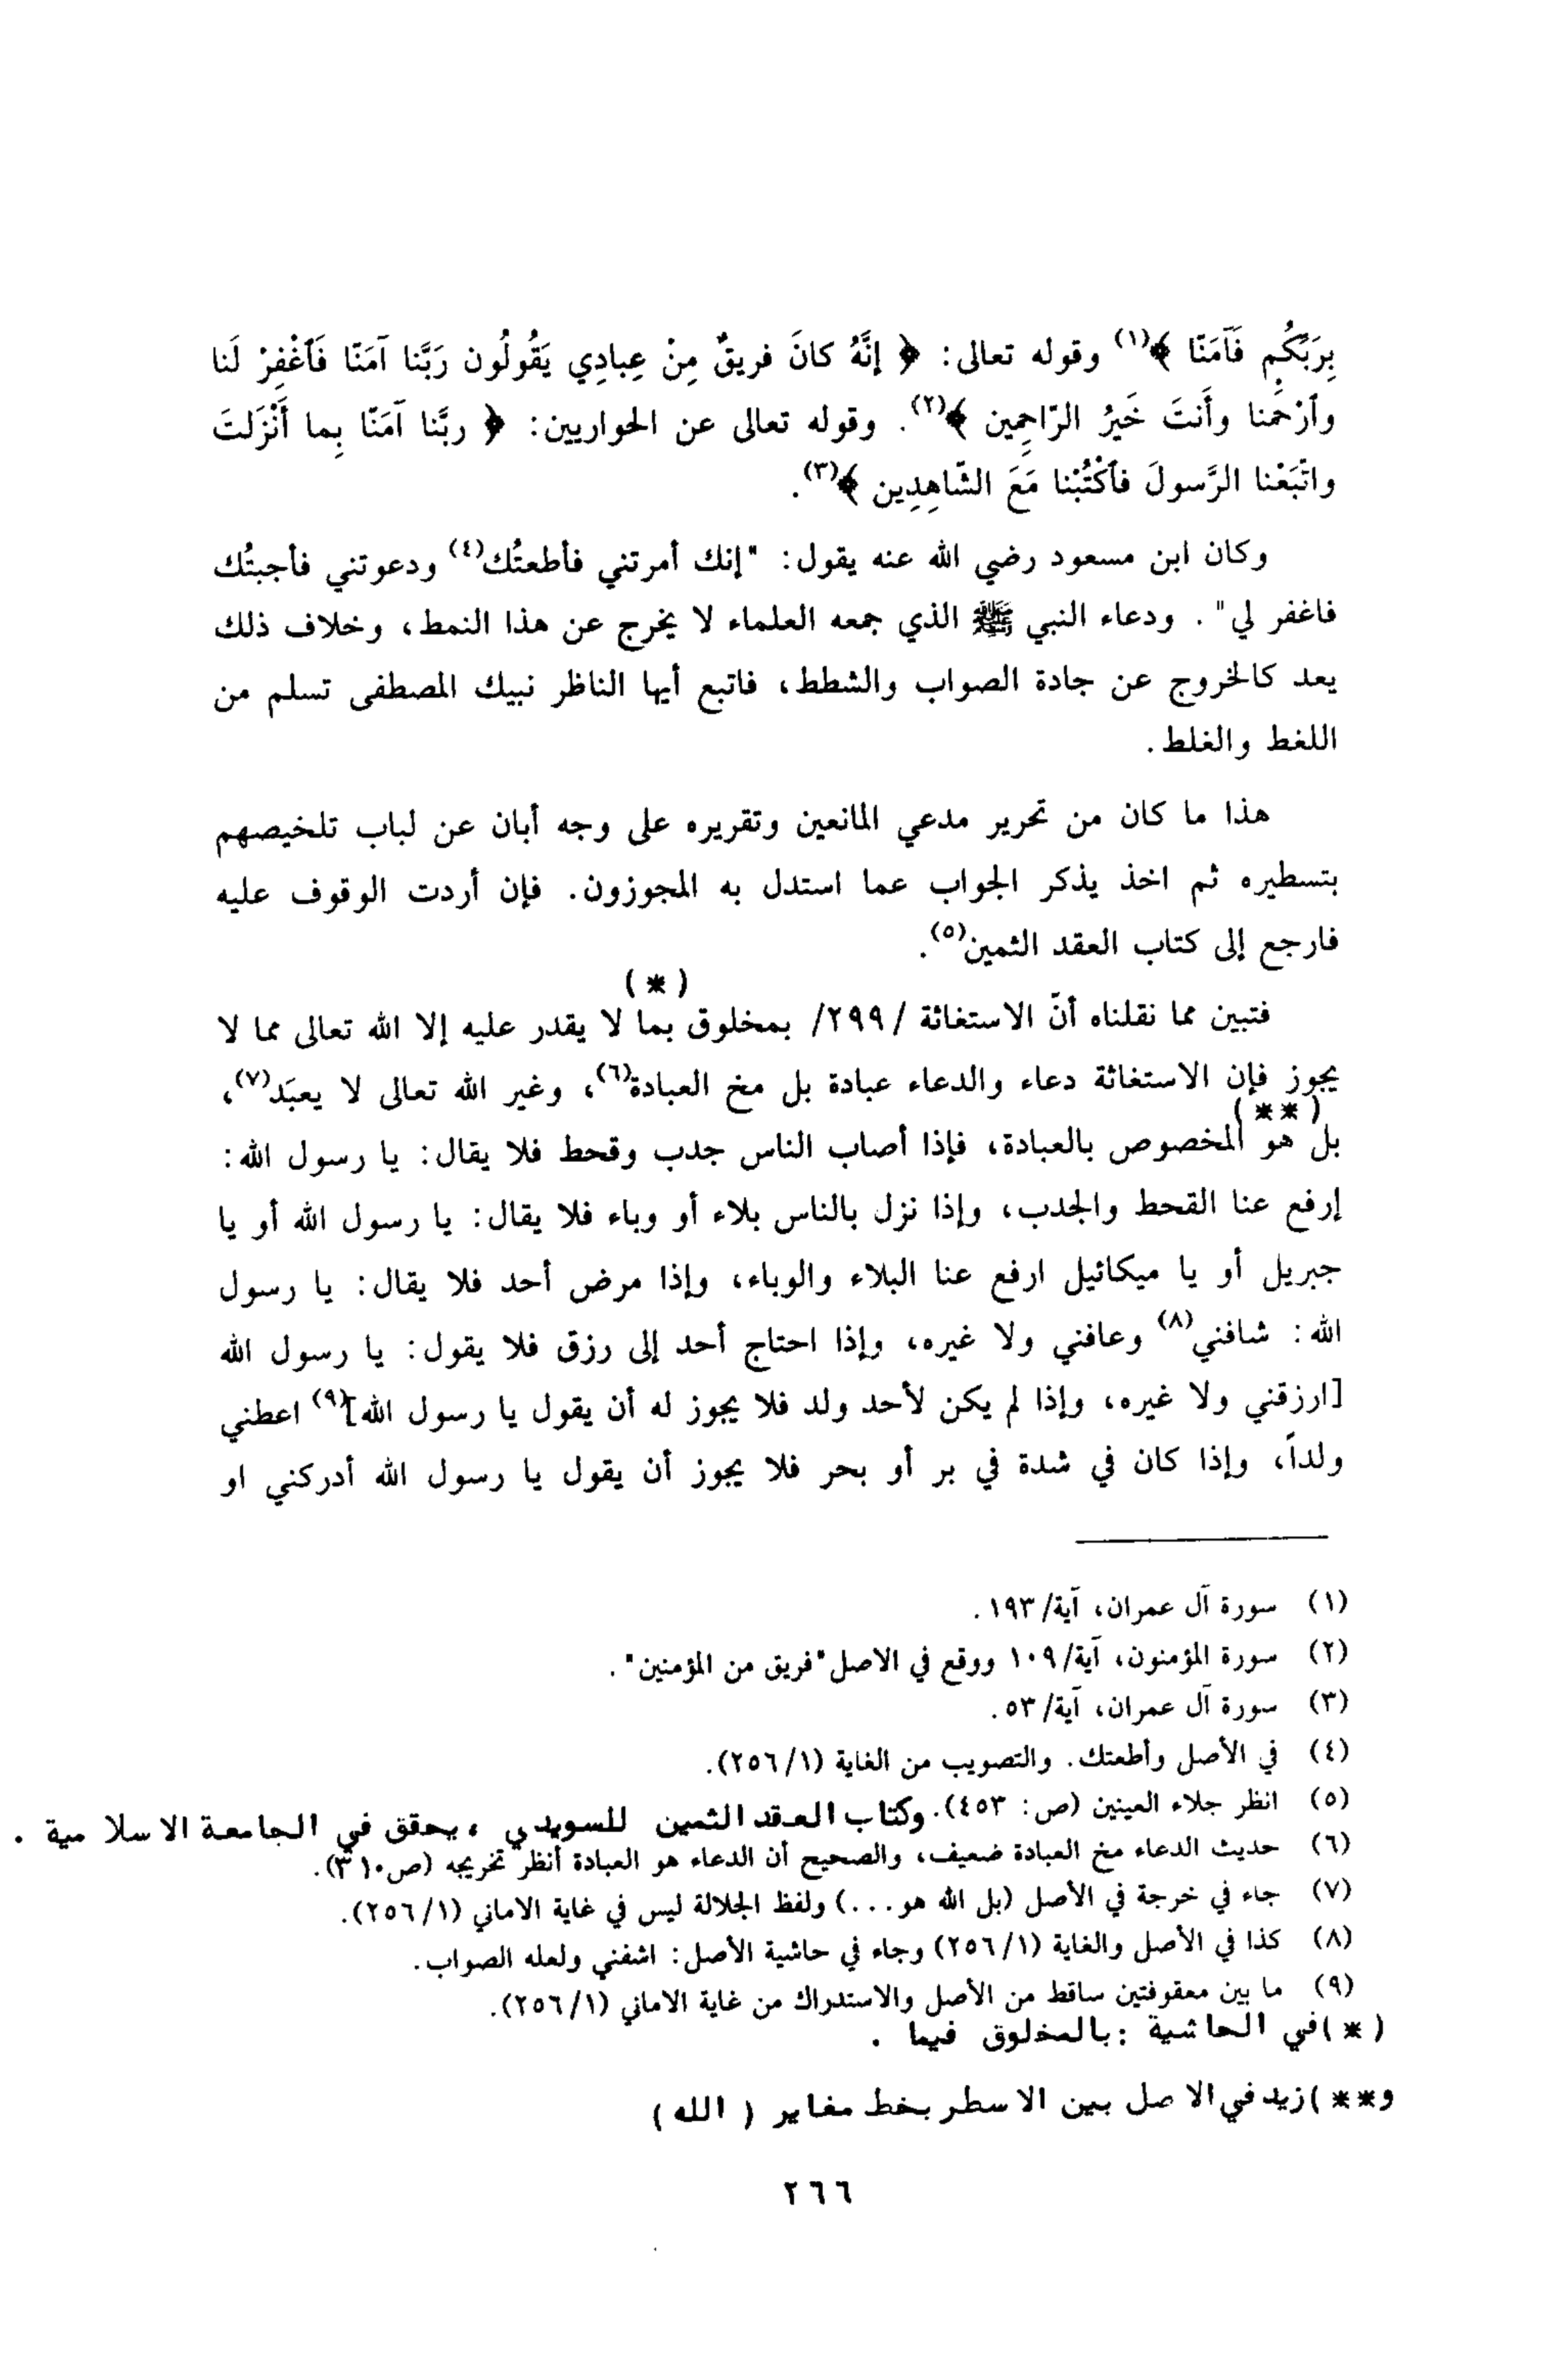 بِرَبِّكُم فَآمَنّا ﴾(١) وقوله تعالى: ﴿ إنَّهُ كانَ فريقٌ مِنْ عِبادِي يَقُولُون رَبَّنا آمَنّا فَاَغْفِرْ لَنا
وآرْحَمنا وأَنتَ خَيرُ الرّاحِمِين ﴾(٢). وقوله تعالى عن الحواريين: ﴿ ربَّنا آمَنّا بِما أَنْزَلتَ
واتَّبَعْنا الرَّسولَ فاَكْتُبْنا مَعَ الشّاهِدِين ﴾(٣).
وكان ابن مسعود رضي الله عنه يقول: "إنك أمرتني فأطعتُك(٤) ودعوتني فأجبتُك
فاغفر لي". ودعاء النبي ﷺ الذي جمعه العلماء لا يخرج عن هذا النمط، وخلاف ذلك
يعد كالخروج عن جادة الصواب والشطط، فاتبع أيها الناظر نبيك المصطفى تسلم من
اللغط والغلط.
هذا ما كان من تحرير مدعي المانعين وتقريره على وجه أبان عن لباب تلخيصهم
بتسطيره ثم اخذ يذكر الجواب عما استدل به المجوزون. فإن أردت الوقوف عليه
فارجع إلى كتاب العقد الثمين(٥).
(*)
فتبين مما نقلناه أنّ الاستغاثة /٢٩٩/ بمخلوق بما لا يقدر عليه إلا الله تعالى مما لا
يجوز فإن الاستغاثة دعاء والدعاء عبادة بل مخ العبادة(٦)، وغير الله تعالى لا يعبَد(٧)،
(**)
بل هو المخصوص بالعبادة، فإذا أصاب الناس جدب وقحط فلا يقال: يا رسول الله:
إرفع عنا القحط والجدب، وإذا نزل بالناس بلاء أو وباء فلا يقال: يا رسول الله أو يا
جبريل أو يا ميكائيل ارفع عنا البلاء والوباء، وإذا مرض أحد فلا يقال: يا رسول
الله: شافني(٨) وعافني ولا غيره، وإذا احتاج أحد إلى رزق فلا يقول: يا رسول الله
[ارزقني ولا غيره، وإذا لم يكن لأحد ولد فلا يجوز له أن يقول يا رسول الله](٩) اعطني
ولداً، وإذا كان في شدة في بر أو بحر فلا يجوز أن يقول يا رسول الله أدركني او
(١) سورة آل عمران، آية/١٩٣.
(٢) سورة المؤمنون، آية/١٠٩ ووقع في الاصل "فريق من المؤمنين".
(٣) سورة آل عمران، آية/٥٣.
(٤) في الأصل وأطعتك. والتصويب من الغاية (٢٥٦/١).
(٥) انظر جلاء العينين (ص: ٤٥٣). وكتاب العقد الثمين للسويدي، يحقق في الجامعة الاسلامية.
(٦) حديث الدعاء مخ العبادة ضعيف، والصحيح أن الدعاء هو العبادة أنظر تخريجه (ص٣١٠).
(٧) جاء في خرجة في الأصل (بل الله هو...) ولفظ الجلالة ليس في غاية الاماني (٢٥٦/١).
(٨) كذا في الأصل والغاية (٢٥٦/١) وجاء في حاشية الأصل: اشفني ولعله الصواب.
(٩) ما بين معقوفتين ساقط من الأصل والاستدراك من غاية الاماني (٢٥٦/١).
(*) في الحاشية: بالمخلوق فيما.
و**) زيد في الاصل بين الاسطر بخط مغاير (الله)
٢٦٦